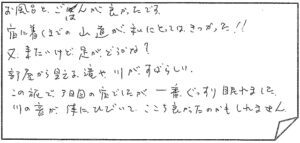 お風呂と、ごはんが良かったです。
宿に着くまでの山道が、私にとってはきつかった!!
又、来たいけど足がどうかな?
部屋から見える滝や川がすばらしい。
この旅で3日目の宿でしたが一番ぐっすり眠れました
川の音が体にひびいてここち良かったのかもしれません